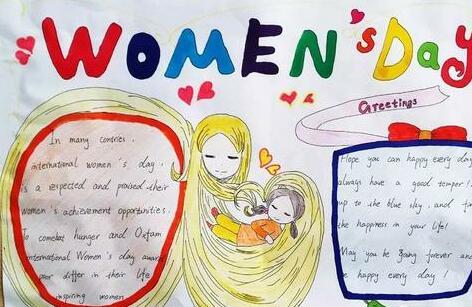 WOMEN'S Day
In many contries,
international women's day,
is a respected and praised their
women's achievement opportunities.
To comebat hunger and Oxfam
International Women's day award
over differ in their life
inspiring women
Greetings
Hope you can happy every day
always have a good temper
up to the blue sky, and
the happiness in your life!
May you be young forever and
be happy every day!